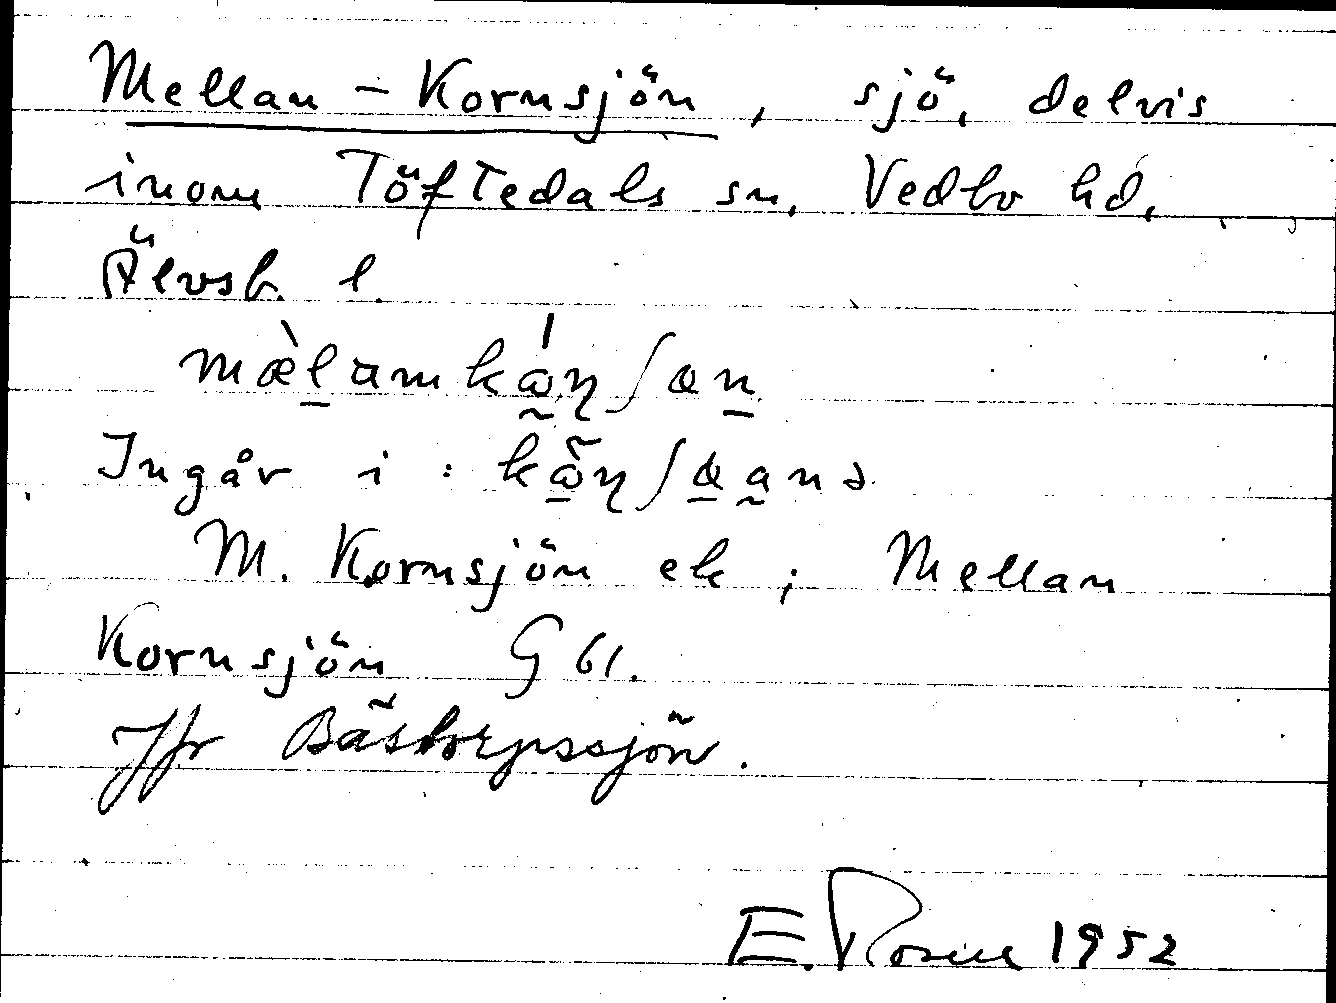 Mellan-Kornsjön, sjö, delvis
inom Töftedals sn, Vedbo hd,
Älvsb. l.
Ingår i:
M. Kornsjön ek; Mellan
Kornsjön G 61.
Jfr Bästorpssjön.
E. 1952